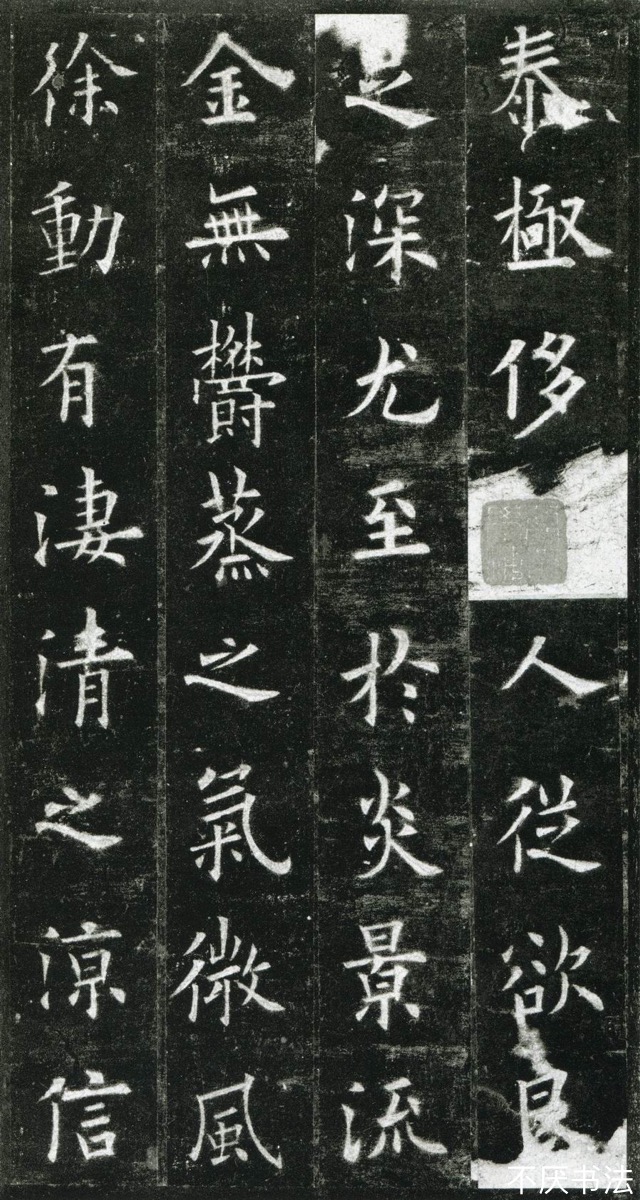 泰極侈人從欲良
之深尤至於炎景流
金無欝蒸之氣微風
徐動有淒清之涼信
不厌书法